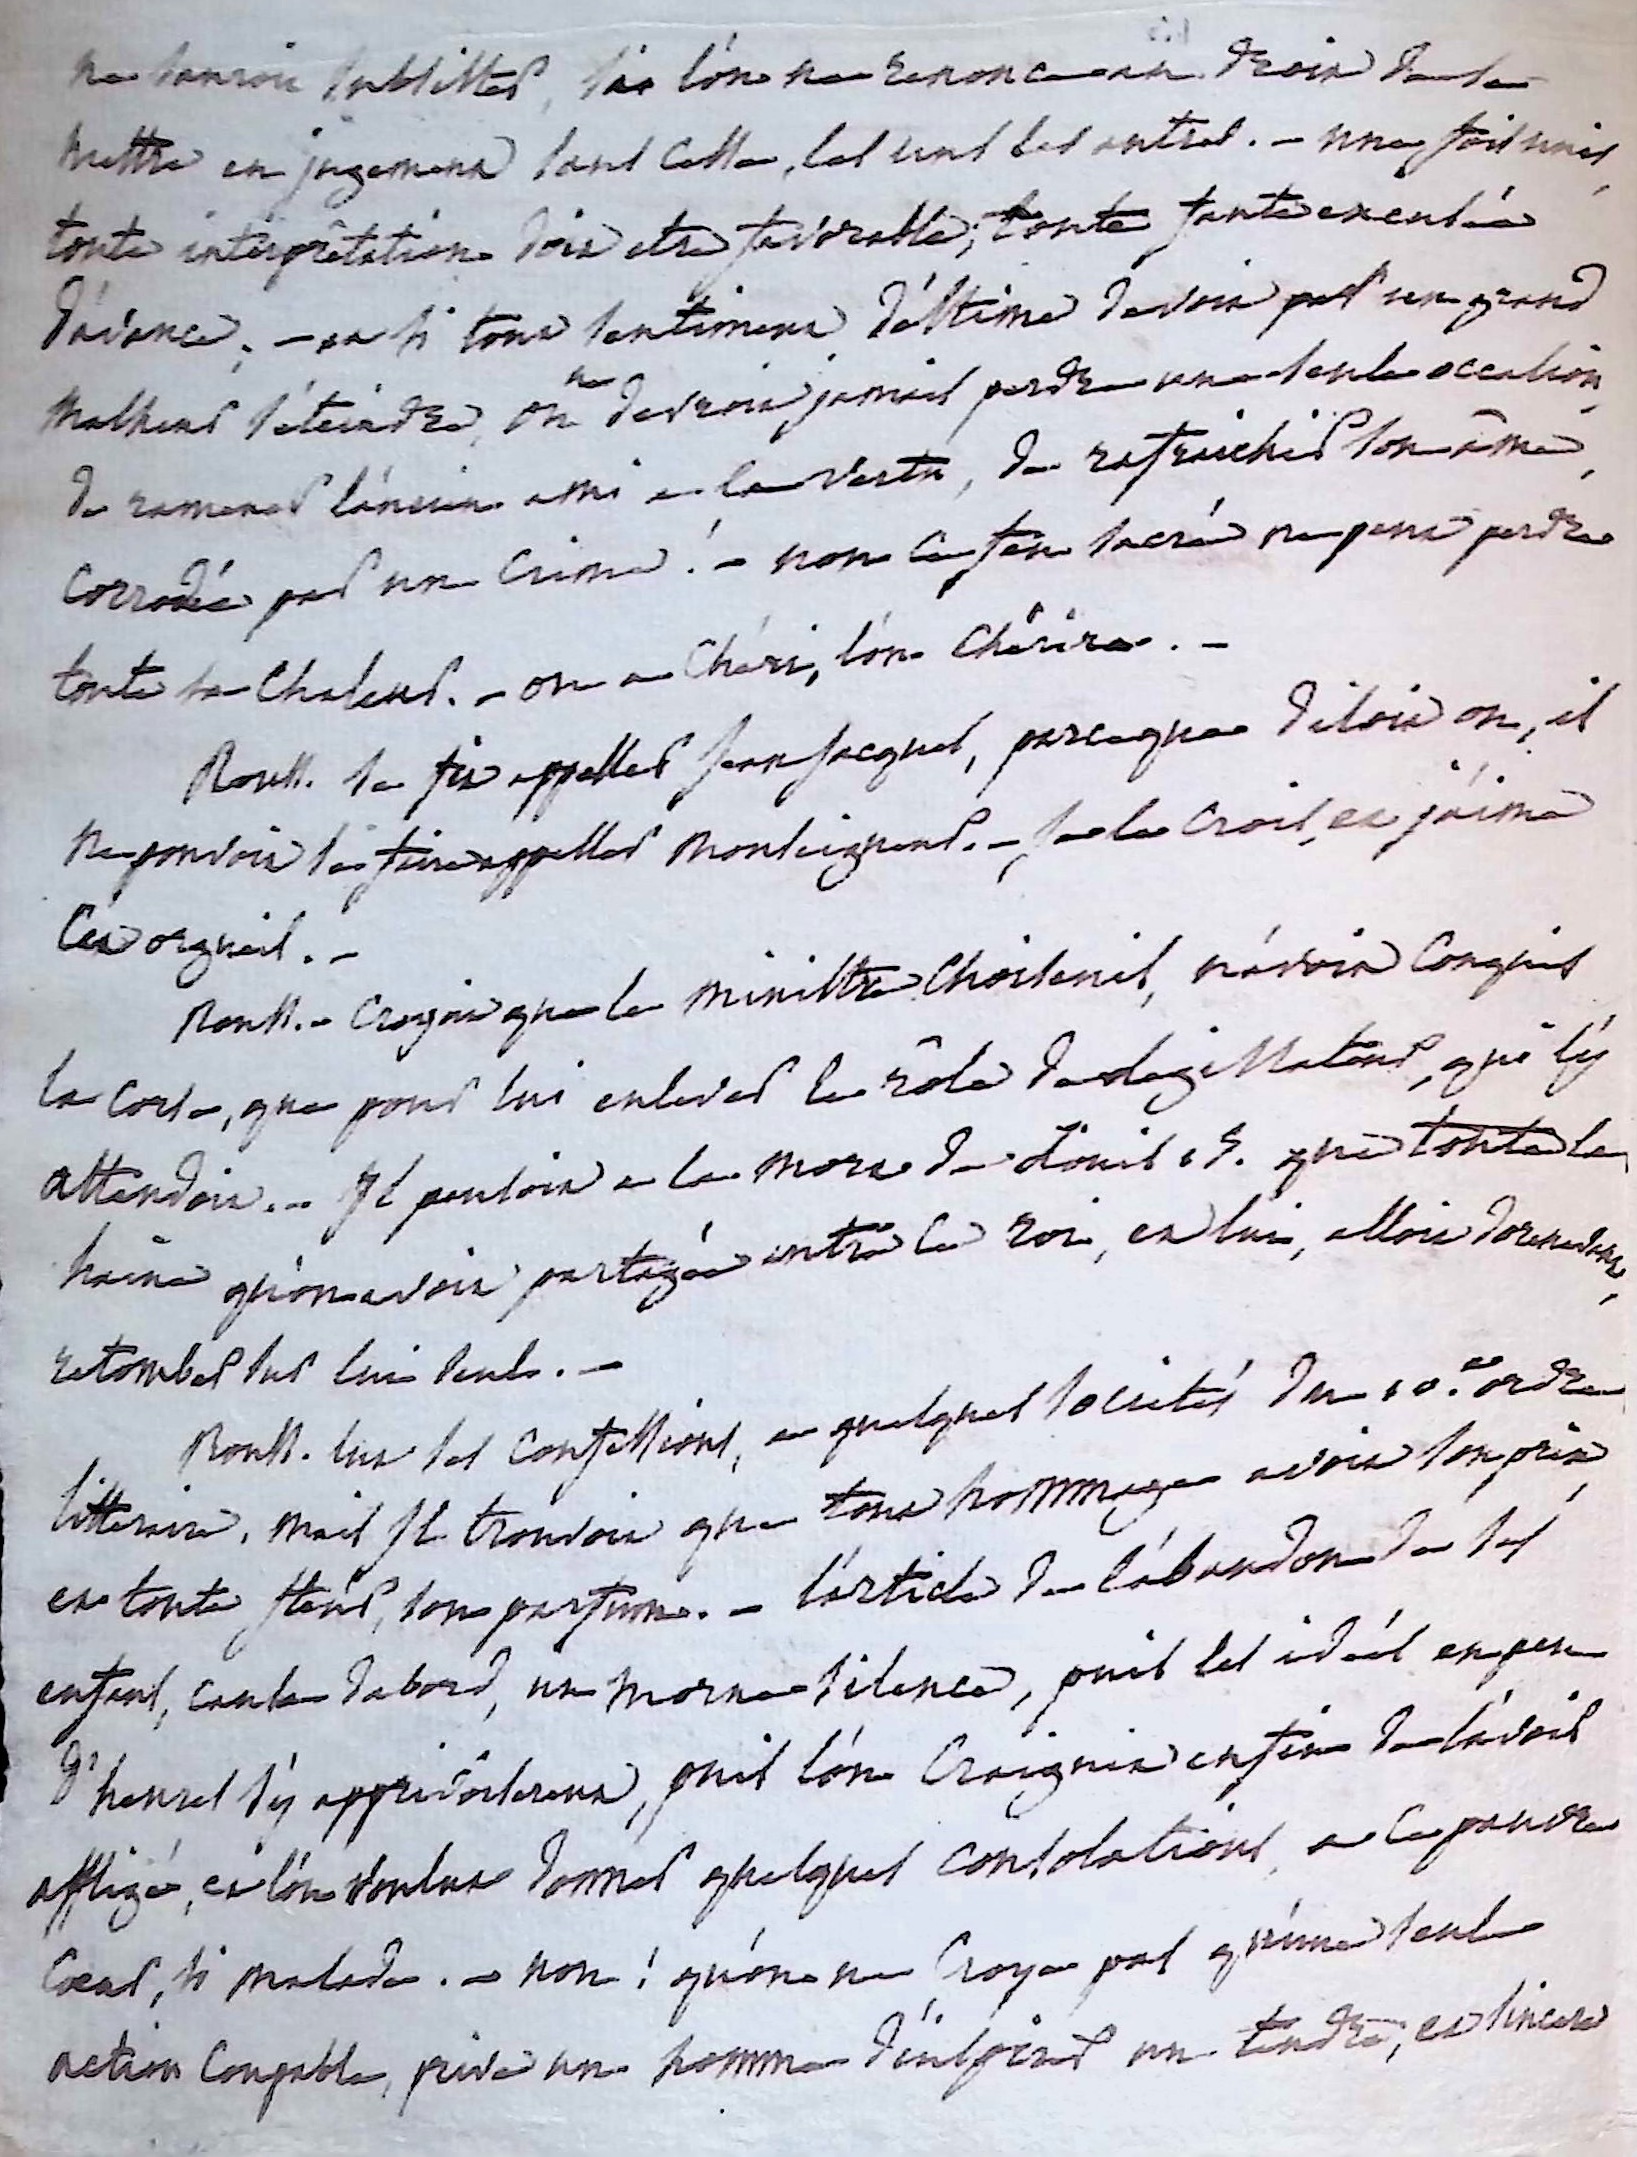 ne sauroit subsister, si l'on ne renonce au droit de se
mettre en jugement sans cesse, les uns les autres. - une fois unis,
toute interprêtation doit etre favorable; toute faute excusée
d'avance; - et si tout sentiment d'éstime devoit par un grand
malheur s'éteindre, on ne devroit jamais perdre une seule occasion,
de ramener l'ancien ami a la vertu, de rafraichir son âme,
corrodée par un crime! - non ce feu sacré ne peut perdre
toute sa chaleur. - on a chéri, l'on chérira. -
Rouss. se fit appeller Jean Jacques, parceque disoit on, il
ne pouvoit se faire appeller Monseigneur. - Je le crois, et j'aime
cet orgueil. -
Rouss. - croyoit que le ministre Choiseuil, n'avoit conquis
la Corse, que pour lui enlever le rôle de legislateur, qui l'y
attendoit. - Il pensoit a la mort de Louis 15. que toute la
haine qu'on avoit partagée entre ce roi, et lui, alloit dorenavant,
retomber sur lui seul. -
Rouss. lut ses confessions, a quelques societés du 10.e ordre
litteraire, mais Il trouvoit que tout hommage avoit son prix,
et toute fleur, son parfum. - l'article de l'abandon de ses
enfans, causa dabord, un morne silence, puis les idées en peu
d'heures s'y apprivoiserent, puis l'on craignit enfin de l'avoir
affligé, et l'on voulut donner quelques consolations, a ce pauvre
coeur, si malade. - non! qu'on ne croye pas qu'une seule
action coupable, prive un homme d'inspirer un tendre, et sincere